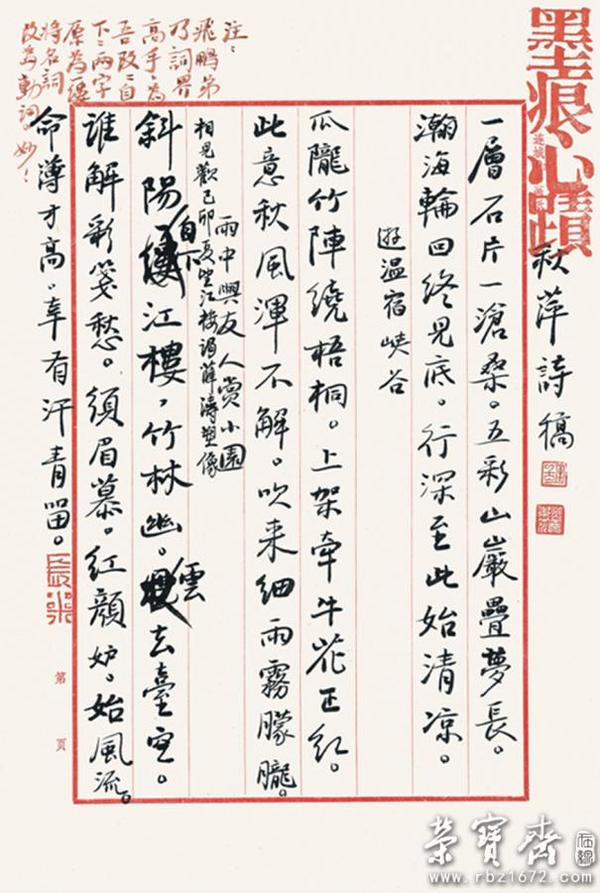 墨痕心蹟
秋萍詩稿
一層石片一滄桑。五彩山巖疊夢長。
瀚海輪回終見底。行深至此始清凉。
遊温宿峽谷
瓜隴竹陣繞梧桐。上架牽牛花正紅。
此意秋風渾不解。吹来細雨霧朦朧。
雨中與友人賞小園
相見歡己卯夏望江樓谒薛濤塑像
斜陽自下江樓，竹林幽。雲去臺空。
誰解彩箋愁。須眉慕。紅顔妒。始風流。
命薄才高。幸有汗青留。
注：
飛鵬弟
乃詞界
高手。為
吾改“自
下”兩字
原為
將名詞
改為動詞。妙！
第 頁
榮寶齋
在線
www.rbz1672.com